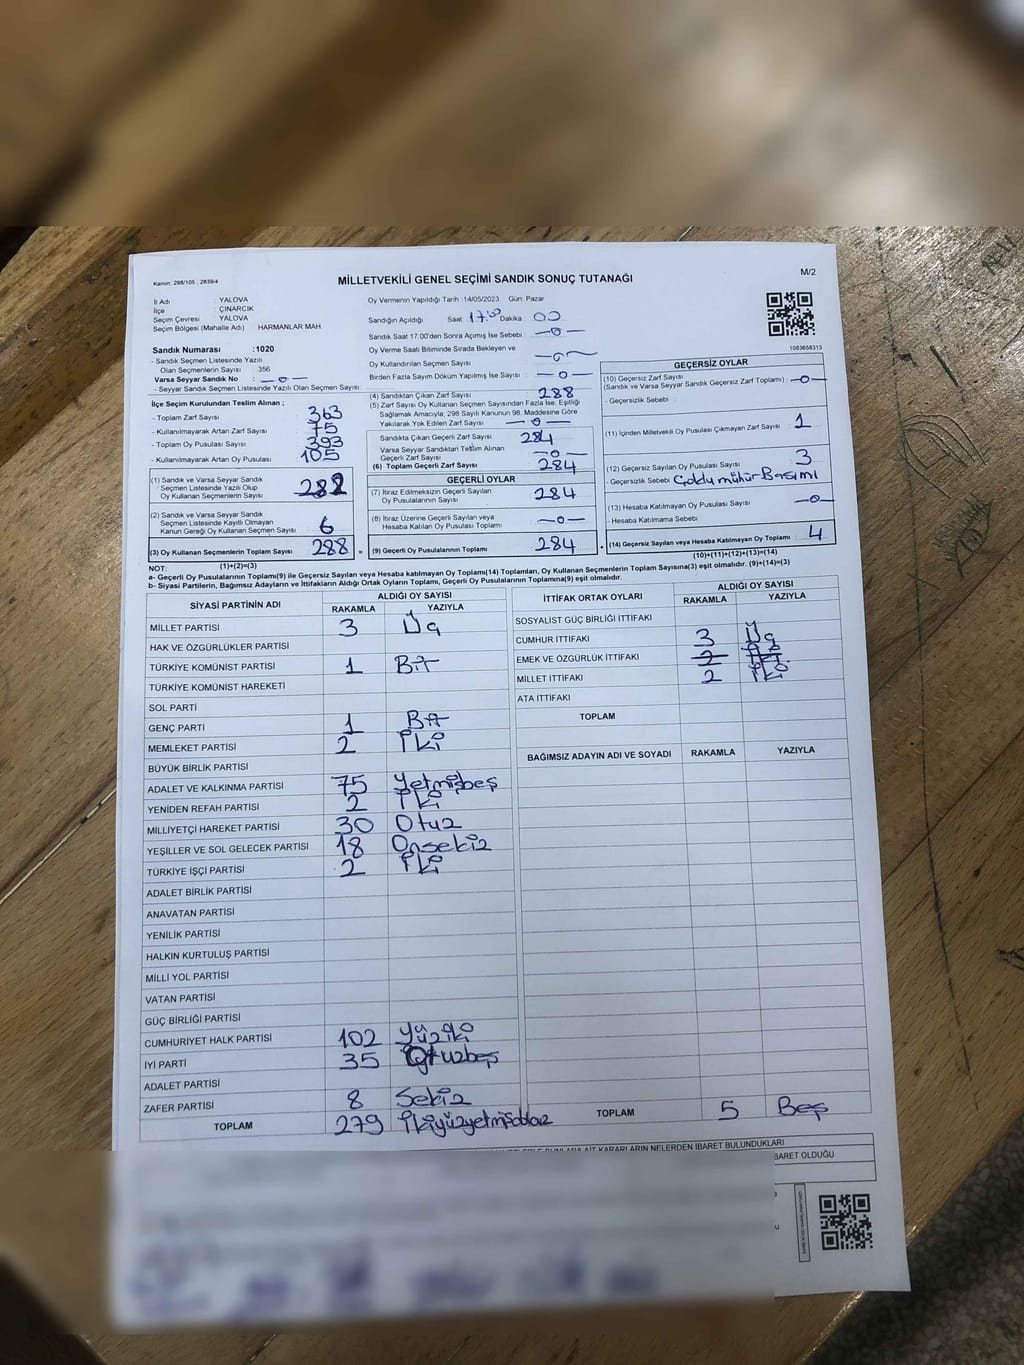 Kanun: 298/105 , 2839/4
MİLLETVEKİLİ GENEL SEÇİMİ SANDIK SONUÇ TUTANAĞI
M/2
İl Adı : YALOVA
İlçe : ÇINARCIK
Seçim Çevresi : YALOVA
Seçim Bölgesi (Mahalle Adı) HARMANLAR MAH.
Sandık Numarası :1020
- Sandık Seçmen Listesinde Yazılı
Olan Seçmenlerin Sayısı : 356
Varsa Seyyar Sandık No : —o—
- Seyyar Sandık Seçmen Listesinde Yazılı Olan Seçmen Sayısı:
İlçe Seçim Kurulundan Teslim Alınan ;
- Toplam Zarf Sayısı : 363
- Kullanılmayarak Artan Zarf Sayısı : 75
- Toplam Oy Pusulası Sayısı : 393
- Kullanılmayarak Artan Oy Pusulası : 105
(1) Sandık ve Varsa Seyyar Sandık
Seçmen Listesinde Yazılı Olup
Oy Kullanan Seçmenlerin Sayısı 282
(2) Sandık ve Varsa Seyyar Sandık
Seçmen Listesinde Kayıtlı Olmayan
Kanun Gereği Oy Kullanan Seçmen Sayısı 6
(3) Oy Kullanan Seçmenlerin Toplam Sayısı 288
(1)+(2)=(3)
Oy Vermenin Yapıldığı Tarih :14/05/2023 Gün: Pazar
Sandığın Açıldığı Saat : 17:00 Dakika : 00
Sandık Saat 17:00'den Sonra Açımış İse Sebebi : —o—
Oy Verme Saati Bitiminde Sırada Bekleyen ve
Oy Kullandırılan Seçmen Sayısı : —o—
Birden Fazla Sayım Döküm Yapılmış İse Sayısı : —o—
(4) Sandıktan Çıkan Zarf Sayısı : 288
(5) Zarf Sayısı Oy Kullanan Seçmen Sayısından Fazla İse, Eşitliği
Sağlamak Amacıyla, 298 Sayılı Kanunun 98. Maddesine Göre
Yakılarak Yok Edilen Zarf Sayısı : —o—
Sandıkta Çıkan Geçerli Zarf Sayısı : 284
Varsa Seyyar Sandıktan Teslim Alınan
Geçerli Zarf Sayısı : —o—
(6) Toplam Geçerli Zarf Sayısı : 284
GEÇERLİ OYLAR
(7) İtiraz Edilmeksizin Geçerli Sayılan
Oy Pusulalarının Sayısı : 284
(8) İtiraz Üzerine Geçerli Sayılan veya
Hesaba Katılan Oy Pusulası Toplamı : —o—
(9) Geçerli Oy Pusulalarının Toplamı : 284
1083658313
GEÇERSİZ OYLAR
(10) Geçersiz Zarf Sayısı
(Sandık ve Varsa Seyyar Sandık Geçersiz Zarf Toplamı) : —o—
- Geçersizlik Sebebi :
(11) İçinden Milletvekili Oy Pusulası Çıkmayan Zarf Sayısı : 1
(12) Geçersiz Sayılan Oy Pusulası Sayısı : 3
- Geçersizlik Sebebi
(13) Hesaba Katılmayan Oy Pusulası Sayısı : —o—
- Hesaba Katılmama Sebebi :
(14) Geçersiz Sayılan veya Hesaba Katılmayan Oy Toplamı : 4
(10)+(11)+(12)+(13)=(14)
NOT:
a- Geçerli Oy Pusulalarının Toplamı(9) ile Geçersiz Sayılan veya Hesaba katılmayan Oy Toplamı(14) Toplamları, Oy Kullanan Seçmenlerin Toplam Sayısına(3) eşit olmalıdır. (9)+(14)=(3)
b- Siyasi Partilerin, Bağımsız Adayların ve İttifakların Aldığı Ortak Oyların Toplamı, Geçerli Oy Pusulalarının Toplamına(9) eşit olmalıdır.
SİYASİ PARTİNİN ADI
ALDIĞI OY SAYISI
RAKAMLA YAZIYLA
MİLLET PARTİSİ 3 Üç
HAK VE ÖZGÜRLÜKLER PARTİSİ
TÜRKİYE KOMÜNİST PARTİSİ 1 Bir
TÜRKİYE KOMÜNİST HAREKETİ
SOL PARTİ
GENÇ PARTİ 1 Bir
MEMLEKET PARTİSİ 2 İki
BÜYÜK BİRLİK PARTİSİ
ADALET VE KALKINMA PARTİSİ 75 Yetmişbeş
YENİDEN REFAH PARTİSİ 2 İki
MİLLİYETÇİ HAREKET PARTİSİ 30 Otuz
YEŞİLLER VE SOL GELECEK PARTİSİ 18 Onsekiz
TÜRKİYE İŞÇİ PARTİSİ 2 İki
ADALET BİRLİK PARTİSİ
ANAVATAN PARTİSİ
YENİLİK PARTİSİ
HALKIN KURTULUŞ PARTİSİ
MİLLİ YOL PARTİSİ
VATAN PARTİSİ
GÜÇ BİRLİĞİ PARTİSİ
CUMHURİYET HALK PARTİSİ 102 Yüziki
İYİ PARTİ 35 Otuzbeş
ADALET PARTİSİ
ZAFER PARTİSİ 8 Sekiz
TOPLAM 279 İkiyüzyetmişdokuz
İTTİFAK ORTAK OYLARI
ALDIĞI OY SAYISI
RAKAMLA YAZIYLA
SOSYALİST GÜÇ BİRLİĞİ İTTİFAKI
CUMHUR İTTİFAKI 3 Üç
EMEK VE ÖZGÜRLÜK İTTİFAKI 2 İki
MİLLET İTTİFAKI 2 İki
ATA İTTİFAKI
TOPLAM
BAĞIMSIZ ADAYIN ADI VE SOYADI RAKAMLA YAZIYLA
TOPLAM 5 Beş
KARARLARIN NELERDEN İBARET BULUNDUKLARI
İBARET OLDUĞU